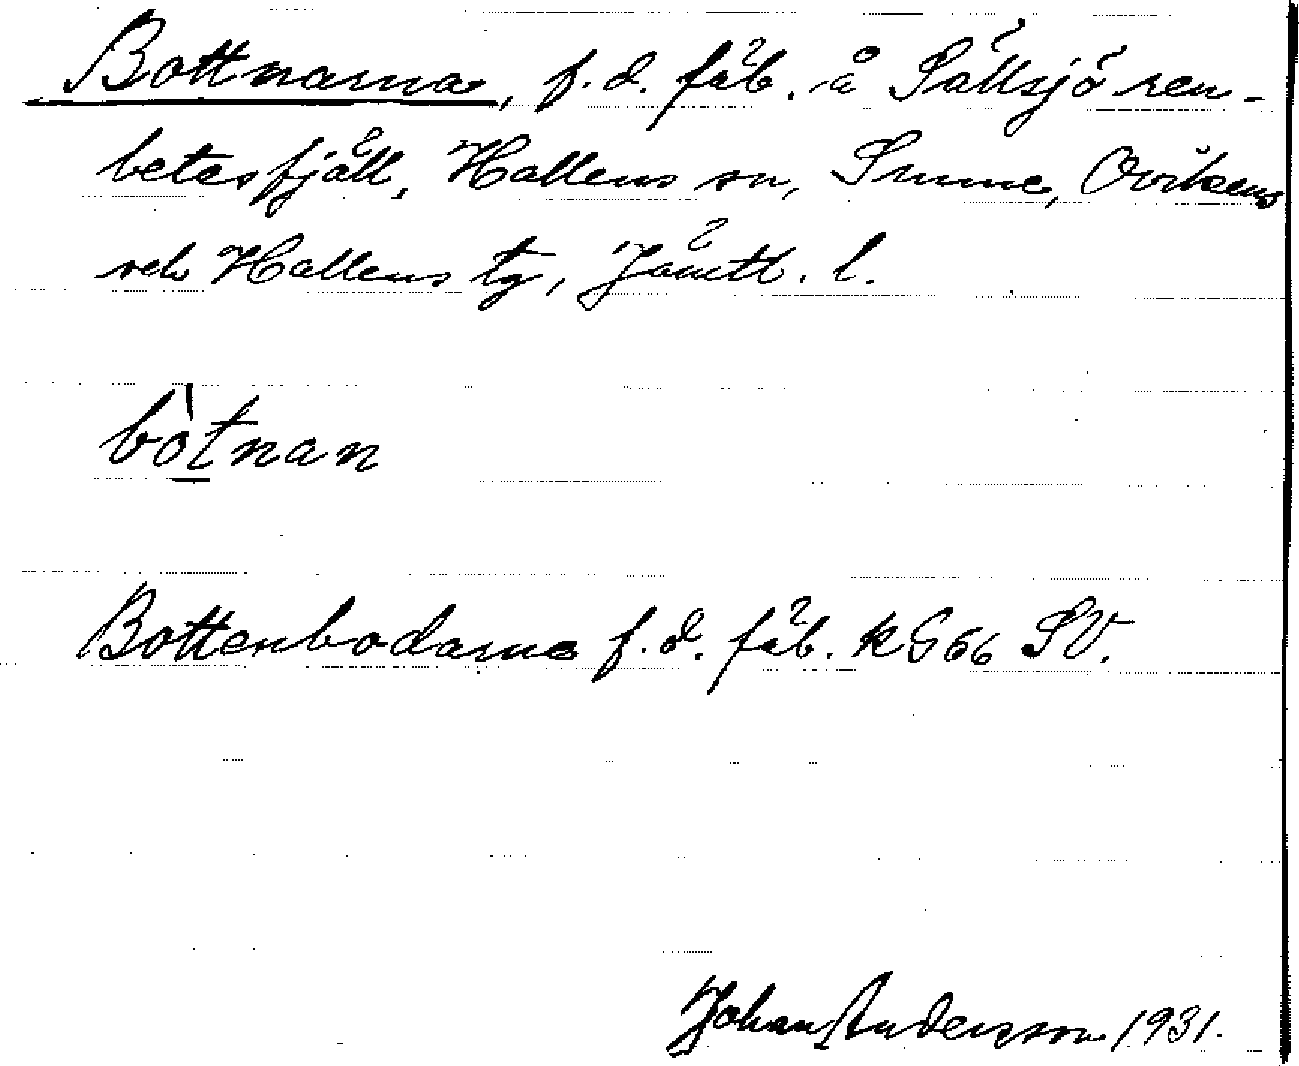 Bottnarna, f.d. fäb. å Sällsjö ren-
betesfjäll, Hallens sn, Sunne, Ovikens
och Hallens tg, Jämtl. l.
bòtnan
Bottenbodarna f.d. fäb. k G66 SV.
Johan Andersson 1931.